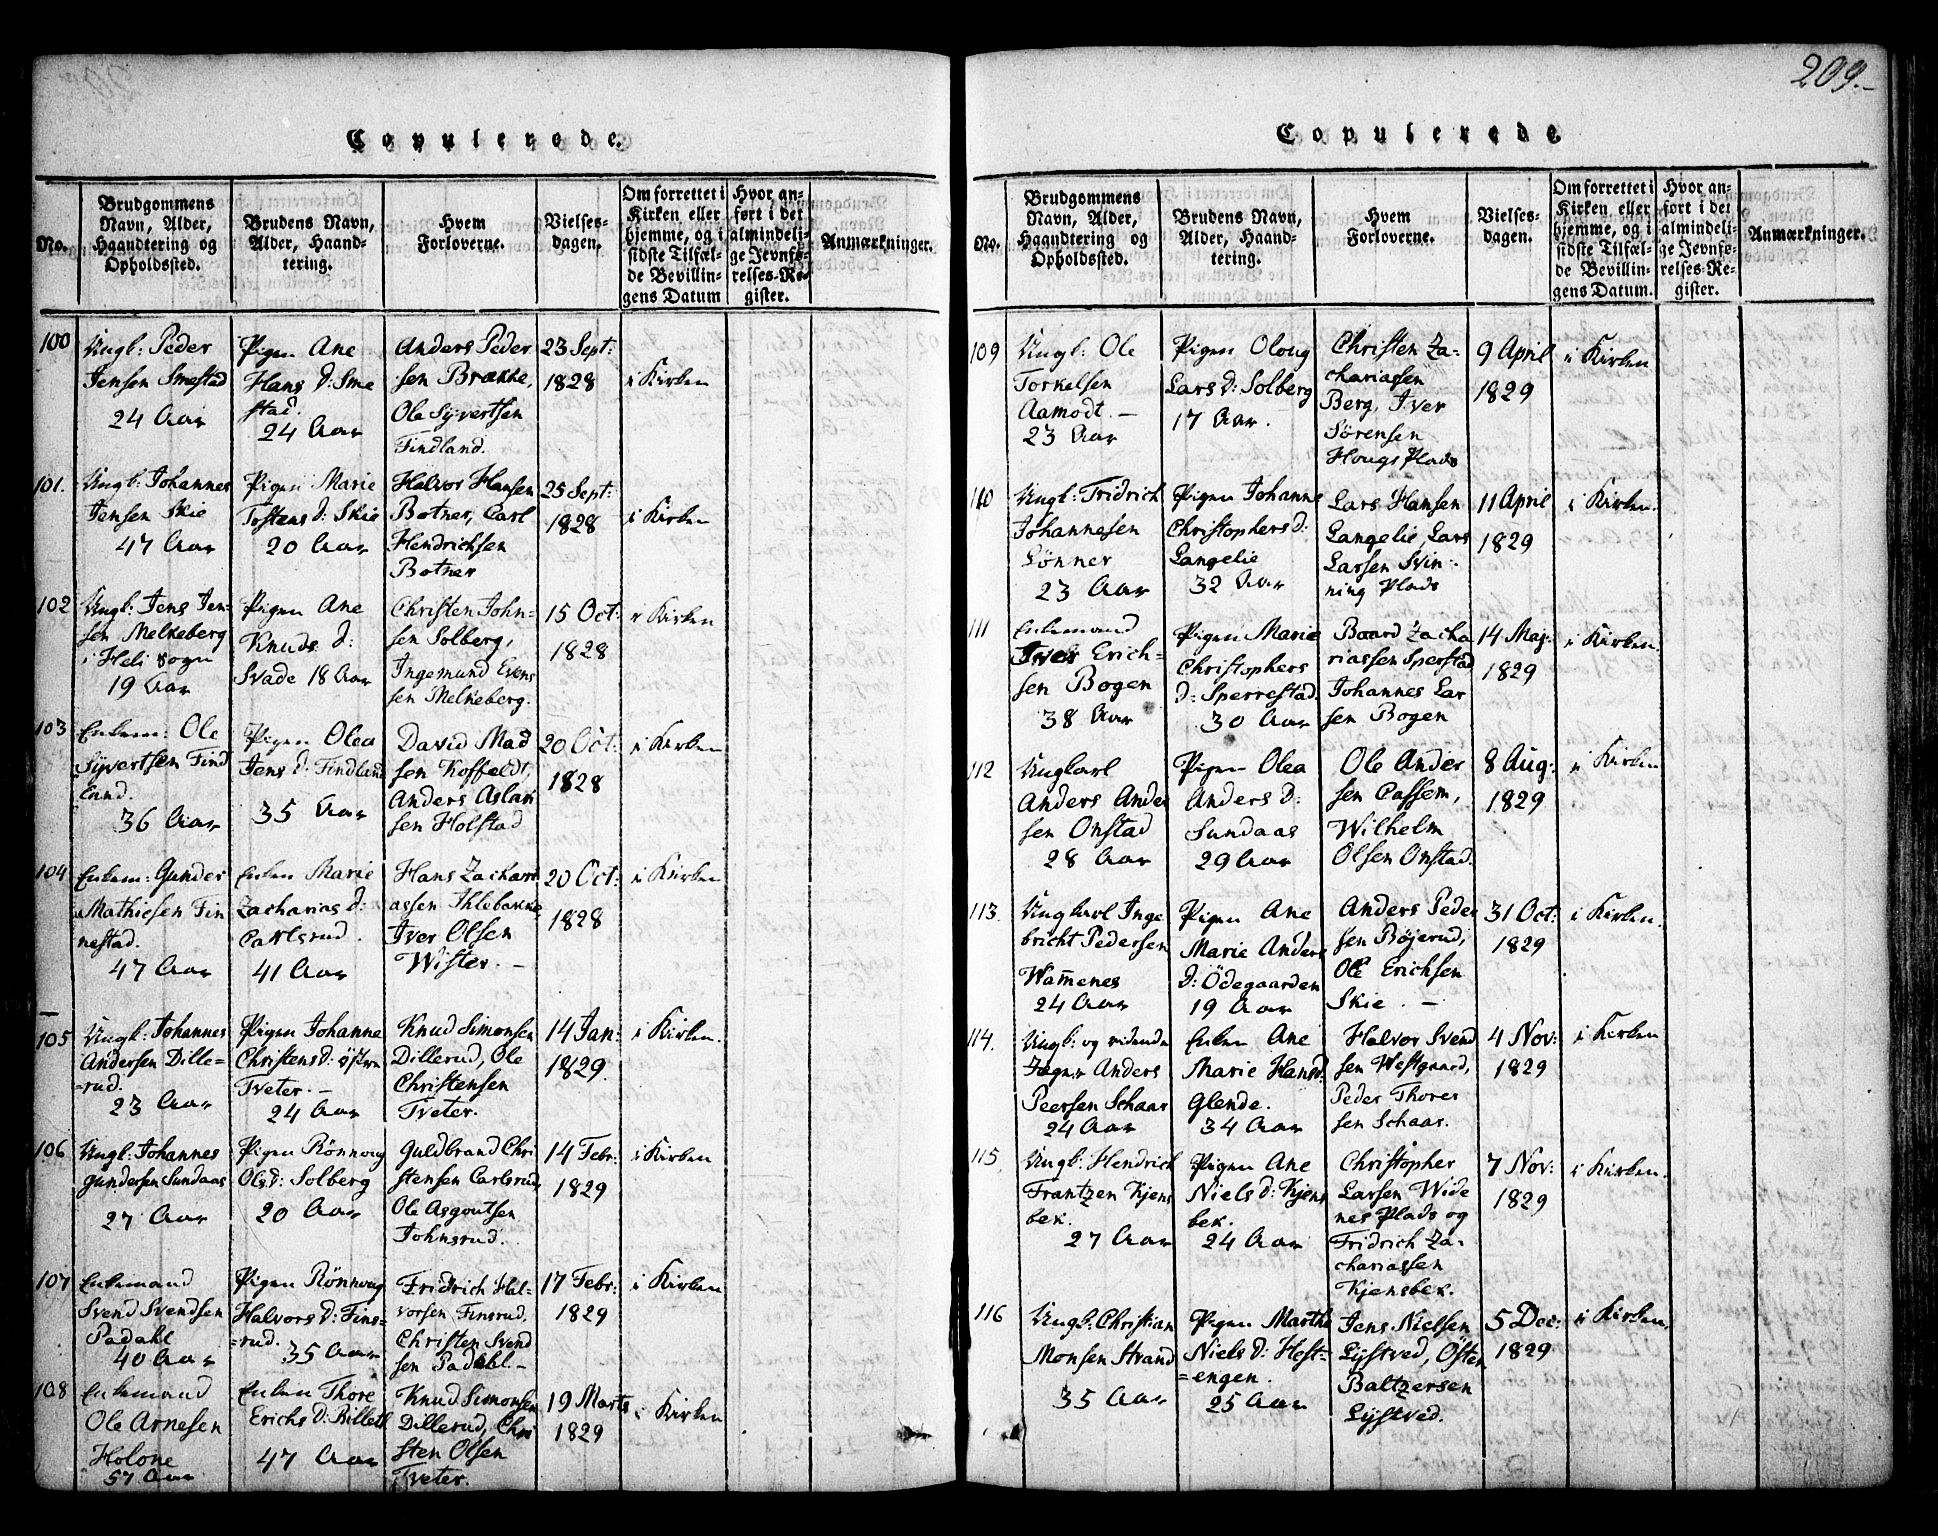 209.
Copulerede.
No.
Brudgommens Navn, Alder, Haandtering og Opholdssted.
Brudens Navn, Alder, Haandtering.
Hvem Forloverne.
Vielsesdagen.
Om forrettet i Kirken eller hjemme, og i sidste Tilfælde Bevillingens Datum
Hvor anført i det almindelige Jevnførelses-Register.
Anmærkninger.
100
Ungk: Peder
Jensen Smestad
24 Aar
Pigen Ane
Hans d: Sme
stad.
24 Aar
Anders Peder
sen Brække,
Ole Syvertsen
Findland.
23 Sept:
1828
i Kirken
101.
Ungk: Johannes
Jensen Skie
47 Aar
Pigen Marie
Tostens d: Skie
20 Aar
Halvor Hansen
Botner, Carl
Hendrichsen
Botner
25 Sept:
1828
i Kirken
102
Ungk: Jens Jen-
sen Melkeberg
i Heli sogn
19 Aar
Pigen Ane
Knuds d:
Svade 18 Aar
Christen John-
sen Solberg,
Ingemund Evens
sen Melkeberg.
15 Oct:
1828
i Kirken
103
Enkem: Ole
Syvertsen Find
land.
36 Aar
Pigen Olea
Jens d: Findland
35 Aar
David Mad
sen Koffeldt,
Anders Aslak
sen Holstad
20 Oct:
1828
i Kirken
104
Enkem: Gunder
Mathiesen Fin
nestad.
47 Aar
Enken Marie
Zacharias d:
Carlsrud.
41 Aar
Hans Zachari
assen Ihlebakke,
Iver Olsen
Wister. -
20 Oct:
1828
i Kirken
105
Ungk: Johannes
Andersen Dille-
-rud.
23 Aar
Pigen Johanne
Christens d: østre
Tveter. -
24 Aar
Knud Simonsen
Dillerud, Ole
Christensen
Tveter.
14 Jan:
1829.
i Kirken.
106
Ungk: Johannes
Gundersen Sundaas
27 Aar
Pigen Rönnoug
Ols d: Solberg
20 Aar
Guldbrand Chri
stensen Carlsrud,
Ole Asgoutsen
Johnsrud.
14 Febr:
1829
i Kirken
107
Enkemand
Svend Svendsen
Padahl
40 Aar
Pigen Rönnoug
Halvors d: Fins-
-rud.
35 Aar
Fridrich Hal-
vorsen Finsrud,
Christen Svend
sen Padahl -
17 Febr:
1829
i Kirken
108
Enkemand
Ole Arnesen
Holone
57 Aar
Enken Thore
Erichs d: Billett
47 Aar
Knud Simonsen
Dillerud, Chri
sten Olsen
Tveter.
19 Marts
1829
i Kirken
Copulerede.
No.
Brudgommens Navn, Alder, Haandtering og Opholdssted.
Brudens Navn, Alder, Haandtering.
Hvem Forloverne.
Vielsesdagen.
Om forrettet i Kirken eller hjemme, og i sidste Tilfælde Bevillingens Datum.
Hvor anført i det almindelige Jevnførelses-Register.
Anmærkninger.
109
Ungk: Ole
Torkelsen
Aamodt. -
23 Aar
Pigen Oloug
Lars d: Solberg
17 Aar.
Christen Za-
chariassen
Berg, Iver
Sörensen
Hougs Plads
9 April
1829
i Kirken
110
Ungk: Fridrich
Johannesen
Lönner
23 Aar
Pigen Johanne
Christophers d:
Langelie
32 Aar
Lars Hansen
Langelie, Lars
Larsen Svin-
ning Plads
11 April
1829
i Kirken.
111
Enkemand
Iver Erich-
sen Bogen
38 Aar
Pigen Marie
Christophers
d: Sperrestad.
30 Aar
Baard Zacha
riassen Sperstad
Johannes Lar
sen Bogen
14 Maj:
1829
i Kirken.
112
Ungkarl
Anders Ander
sen Onstad
28 Aar
Pigen Olea
Anders d:
Sundaas
29 Aar
Ole Ander
sen Cassem,
Wilhelm
Olsen Onstad.
8 Aug:
1829
i Kirken
113.
Ungkarl Inge
bricht Pedersen
Wamenes
24 Aar
Pigen Ane
Marie Anders
d: Ödegaarden
19 Aar
Anders Peder
sen Böjerud,
Ole Erichsen
Skie. -
31 Oct:
1829
i Kirken.
114.
Ungk: og ridende
Jæger Anders
Peersen Schaar
24 Aar
Enken Ane
Marie Hans d:
Glende.
34 Aar
Halvor Svend
sen Westgaard,
Peder Thores
sen Schaar.
4 Nov:
1829
i Kirken
115.
Ungk: Hendrich
Frantzen Kjens
bek.
27 Aar
Pigen Ane
Niels d: Kjens
bek.
24 Aar
Christopher
Larsen Wide
nes Plads og
Fridrich Za-
chariassen
Kjensbek.
7 Nov:
1829
i Kirken.
116
Ungk: Christian
Monsen Strand
35 Aar
Pigen Marthe
Niels d: Hest-
-engen.
25 Aar
Jens Nielsen
Lystved, Östen
Baltzersen
Lystved.
5 Dec:
1829
i Kirken.